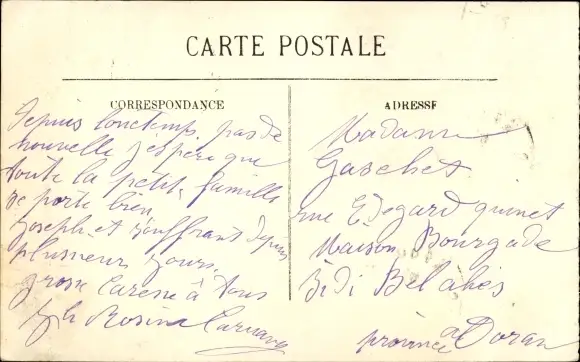 CARTE POSTALE
CORRESPONDANCE
Depuis lonctemp. pas de
nouvelle j'espère que
toute la petit, famille
se porte bien
Joseph, et souffrant depuis
plusieur jours,
grosse Caresse à tous
Rosine
ADRESSE
Madame
Gaschet
rue Edogard quinet
Maison Bourgade
Sidi Bel abès
province d'Oran